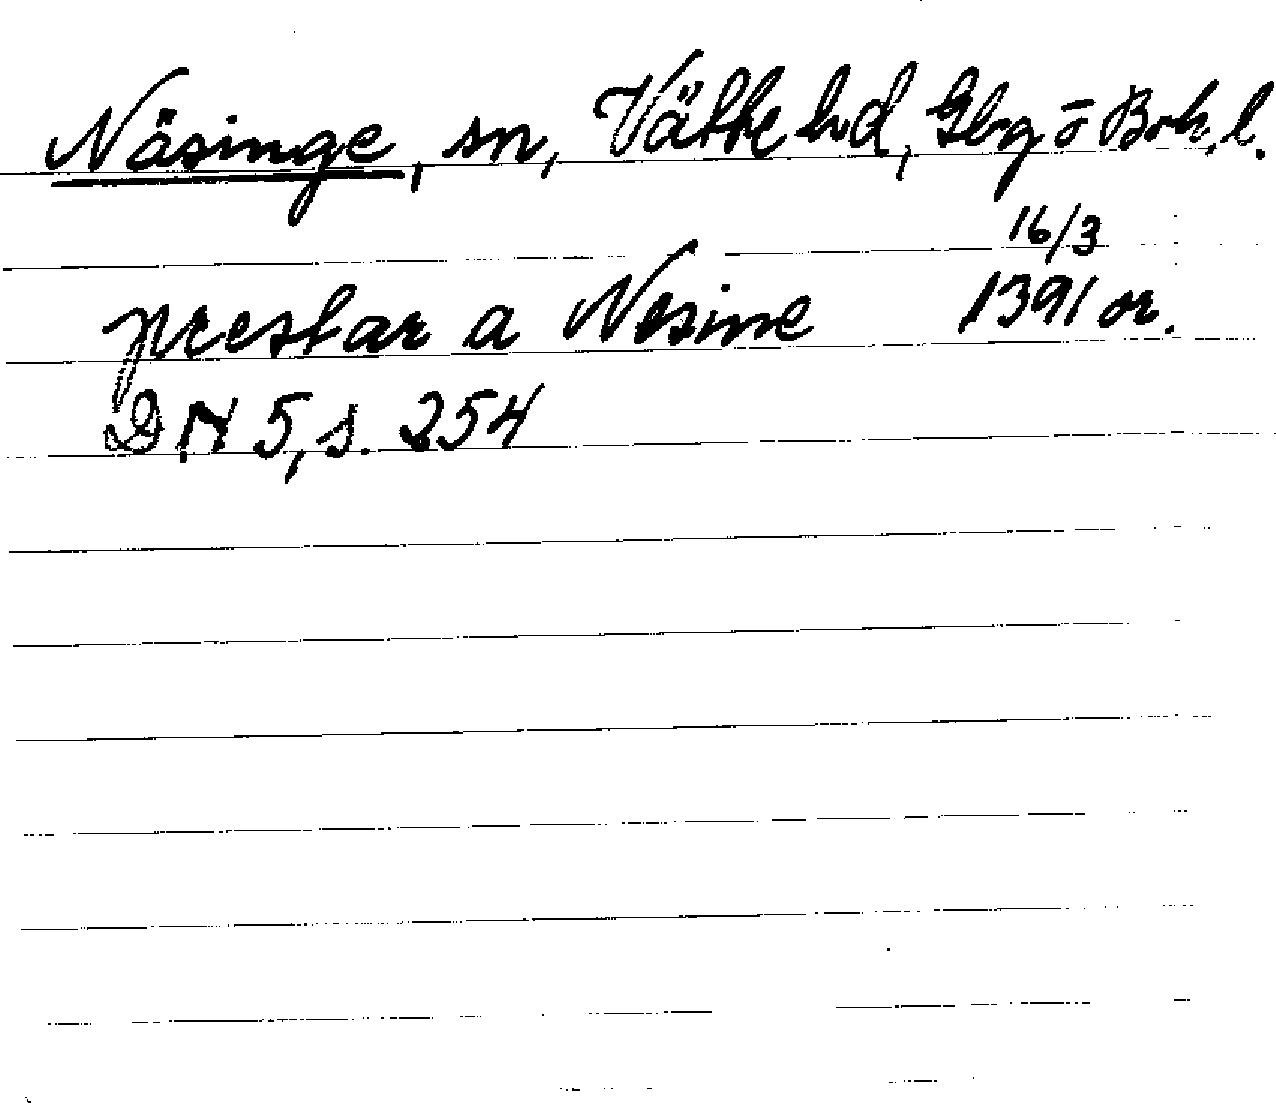 Näsinge, sn, Vätte hd, Gbg o Boh. l.
16/3
prestar a Nesime 1391 or.
DN 5, s. 254